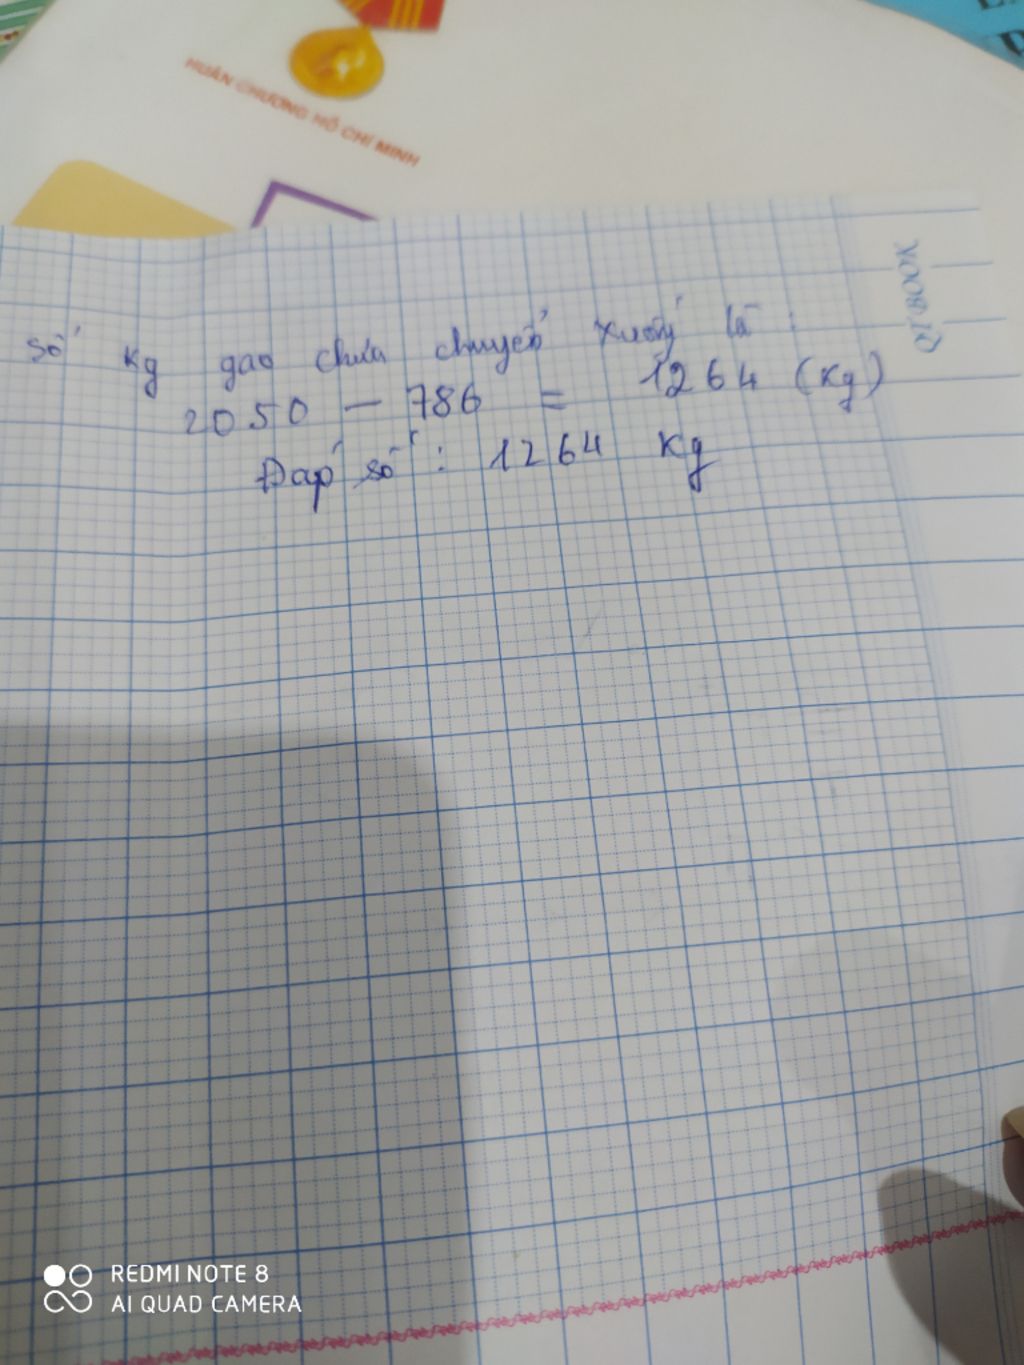 HUÂN CHƯƠNG HỒ CHÍ MINH
QT BOOK
Số kg gạo chưa chuyển xuống là :
2050 - 786 = 1264 (kg)
Đáp số : 1264 kg
REDMI NOTE 8
AI QUAD CAMERA